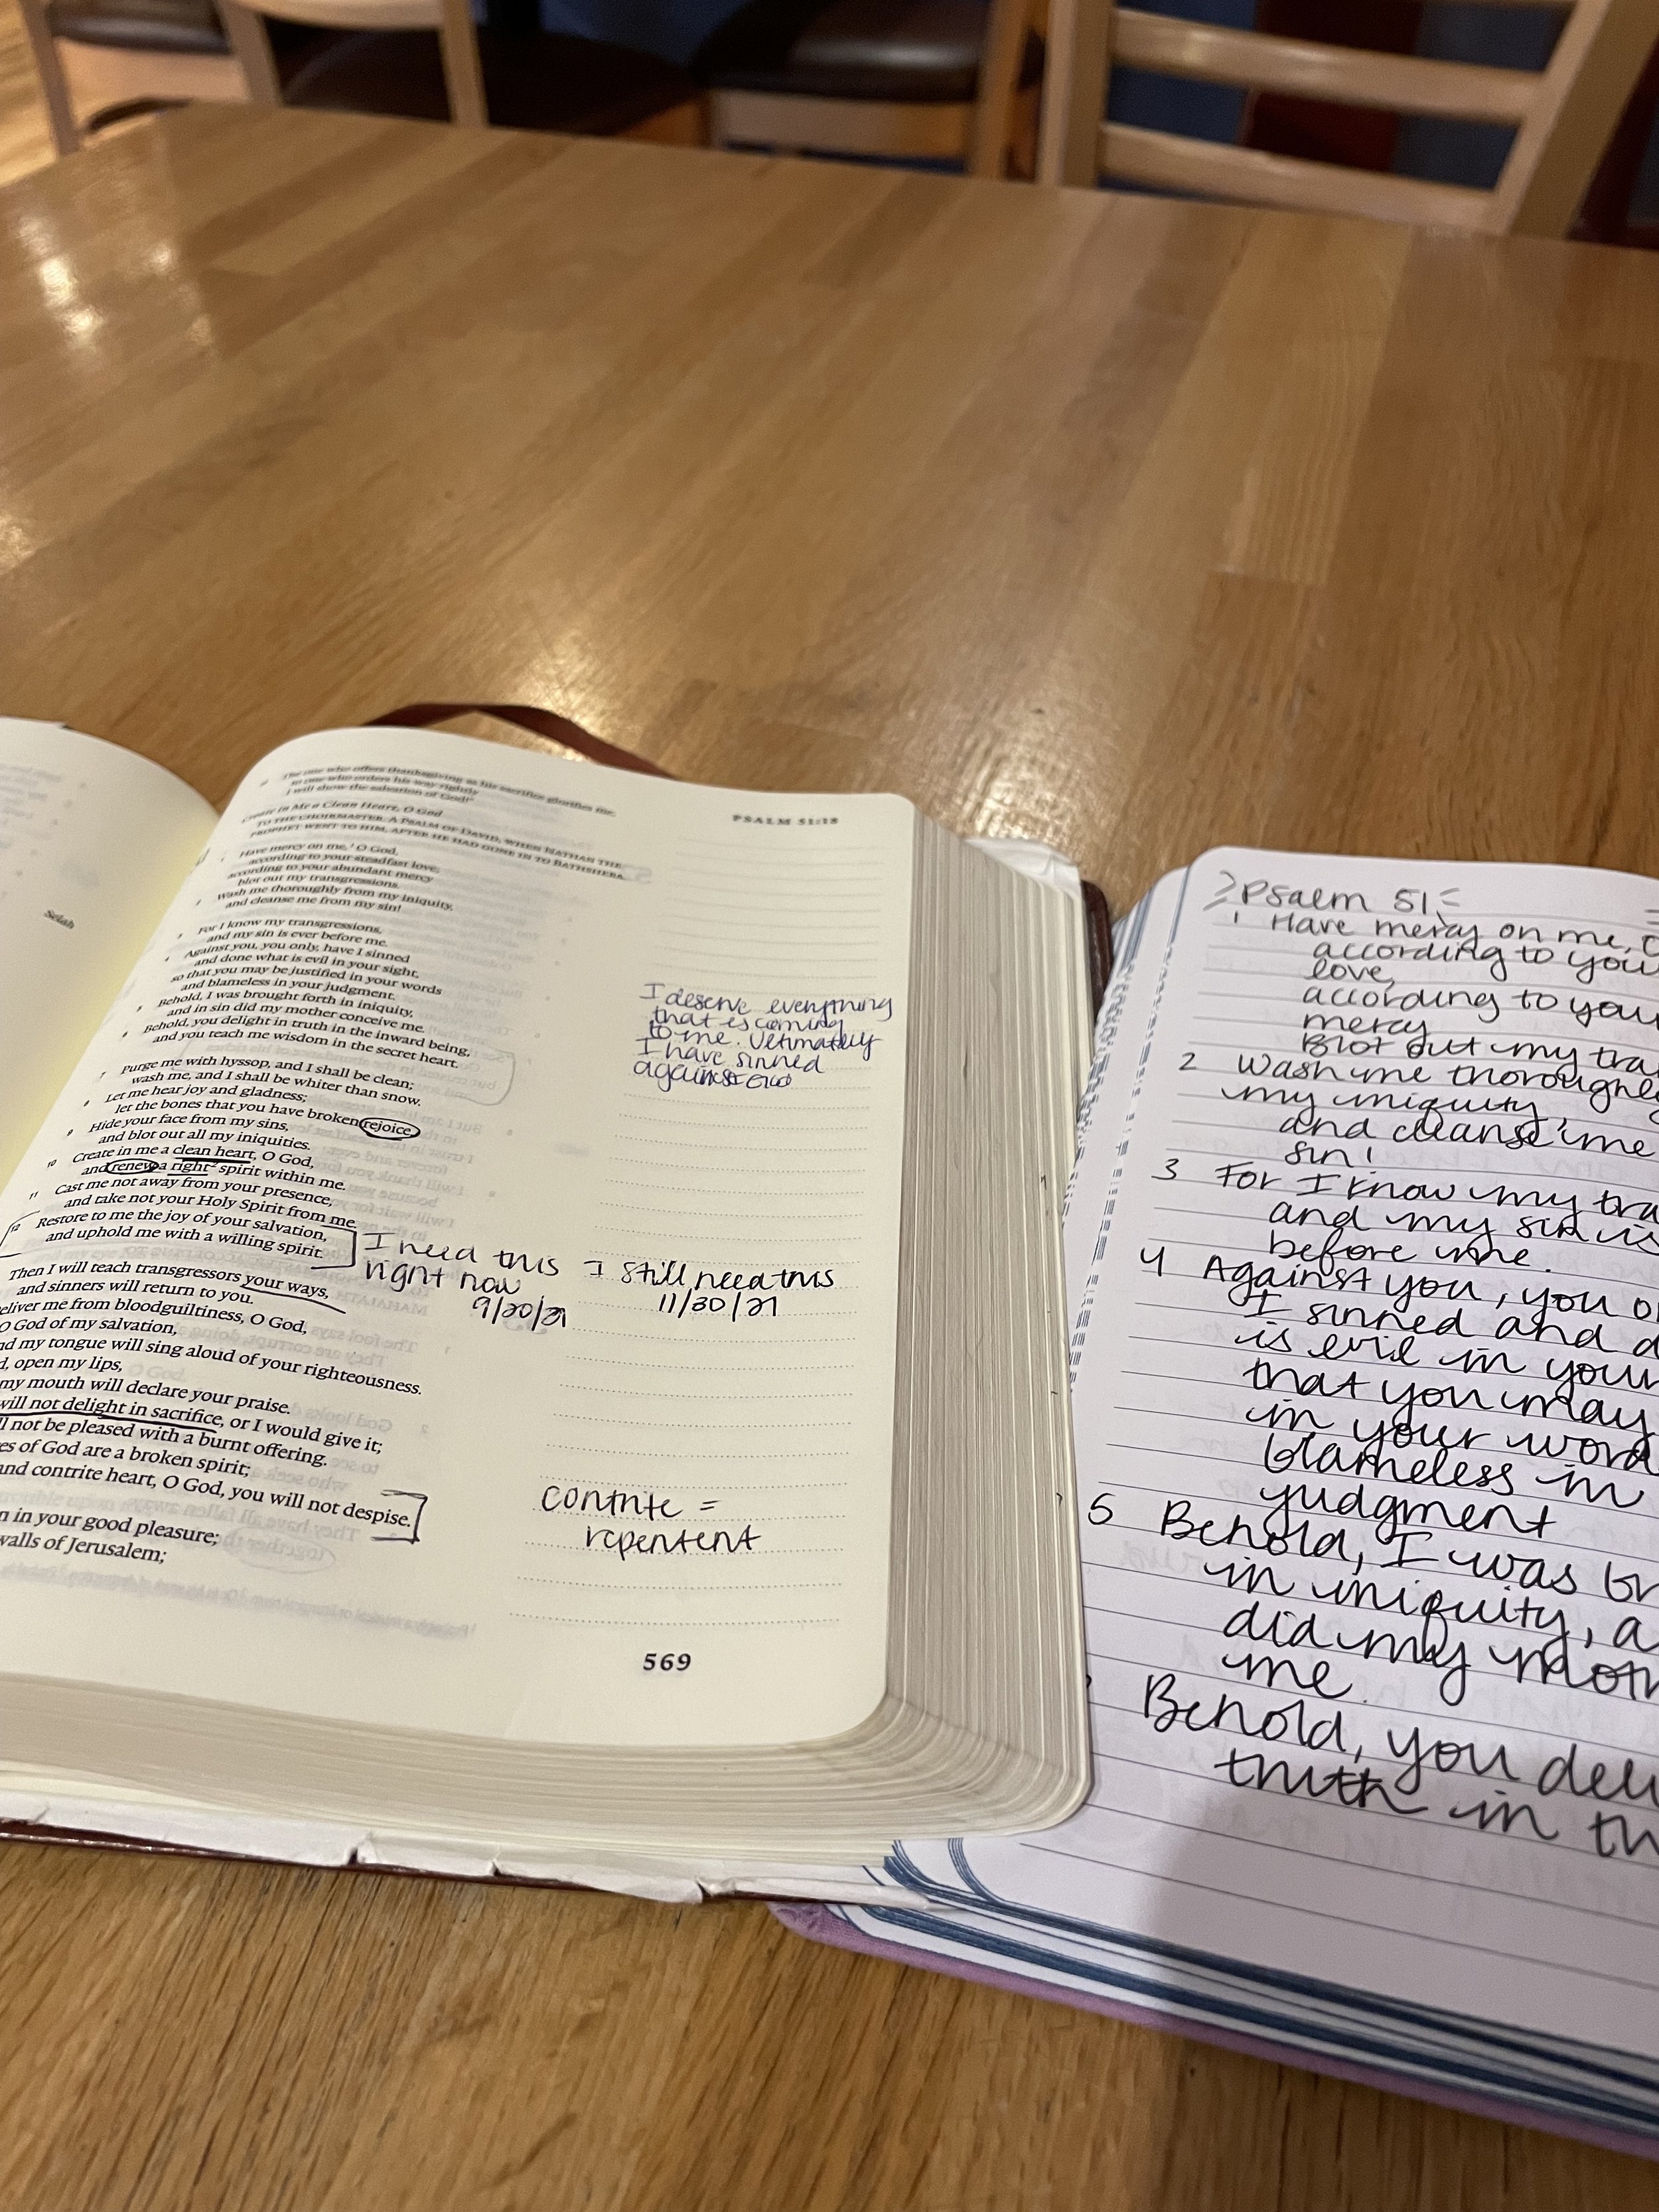 Selah
The one who offers thanksgiving as his sacrifice glorifies me;
to one who orders his way rightly
I will show the salvation of God!"
Create in Me a Clean Heart, O God
TO THE CHOIRMASTER. A PSALM OF DAVID, WHEN NATHAN THE
PROPHET WENT TO HIM, AFTER HE HAD GONE IN TO BATHSHEBA.
PSALM 51:18
Have mercy on me, O God,
according to your steadfast love;
according to your abundant mercy
blot out my transgressions.
Wash me thoroughly from my iniquity,
and cleanse me from my sin!
For I know my transgressions,
and my sin is ever before me.
Against you, you only, have I sinned
and done what is evil in your sight,
so that you may be justified in your words
and blameless in your judgment.
Behold, I was brought forth in iniquity,
and in sin did my mother conceive me.
Behold, you delight in truth in the inward being,
and you teach me wisdom in the secret heart.
Purge me with hyssop, and I shall be clean;
wash me, and I shall be whiter than snow.
Let me hear joy and gladness;
let the bones that you have broken rejoice.
Hide your face from my sins,
and blot out all my iniquities.
10 Create in me a clean heart, O God,
and renew a right spirit within me.
11 Cast me not away from your presence,
and take not your Holy Spirit from me.
12 Restore to me the joy of your salvation,
and uphold me with a willing spirit.
Then I will teach transgressors your ways,
and sinners will return to you.
eliver me from bloodguiltiness, O God,
O God of my salvation,
nd my tongue will sing aloud of your righteousness.
d, open my lips,
my mouth will declare your praise.
will not delight in sacrifice, or I would give it;
ll not be pleased with a burnt offering.
es of God are a broken spirit;
and contrite heart, O God, you will not despise.
n in your good pleasure;
walls of Jerusalem;
I deserve everything
that is coming
to me. Ultimately
I have sinned
against God
I need this
right now
9/20/21
I still need this
11/30/21
contrite =
repentent
569
Psalm 51
1 Have mercy on me, O
according to you
love,
according to you
mercy
Blot out my tra
2 Wash me thoroughl
my iniquity,
and cleanse me
sin!
3 For I know my tra
and my sin is
before me.
4 Against you, you o
I sinned and d
is evil in your
that you may
in your word
blameless in
judgment
5 Behold, I was br
in iniquity, a
did my moth
me.
Behold, you deli
truth in th